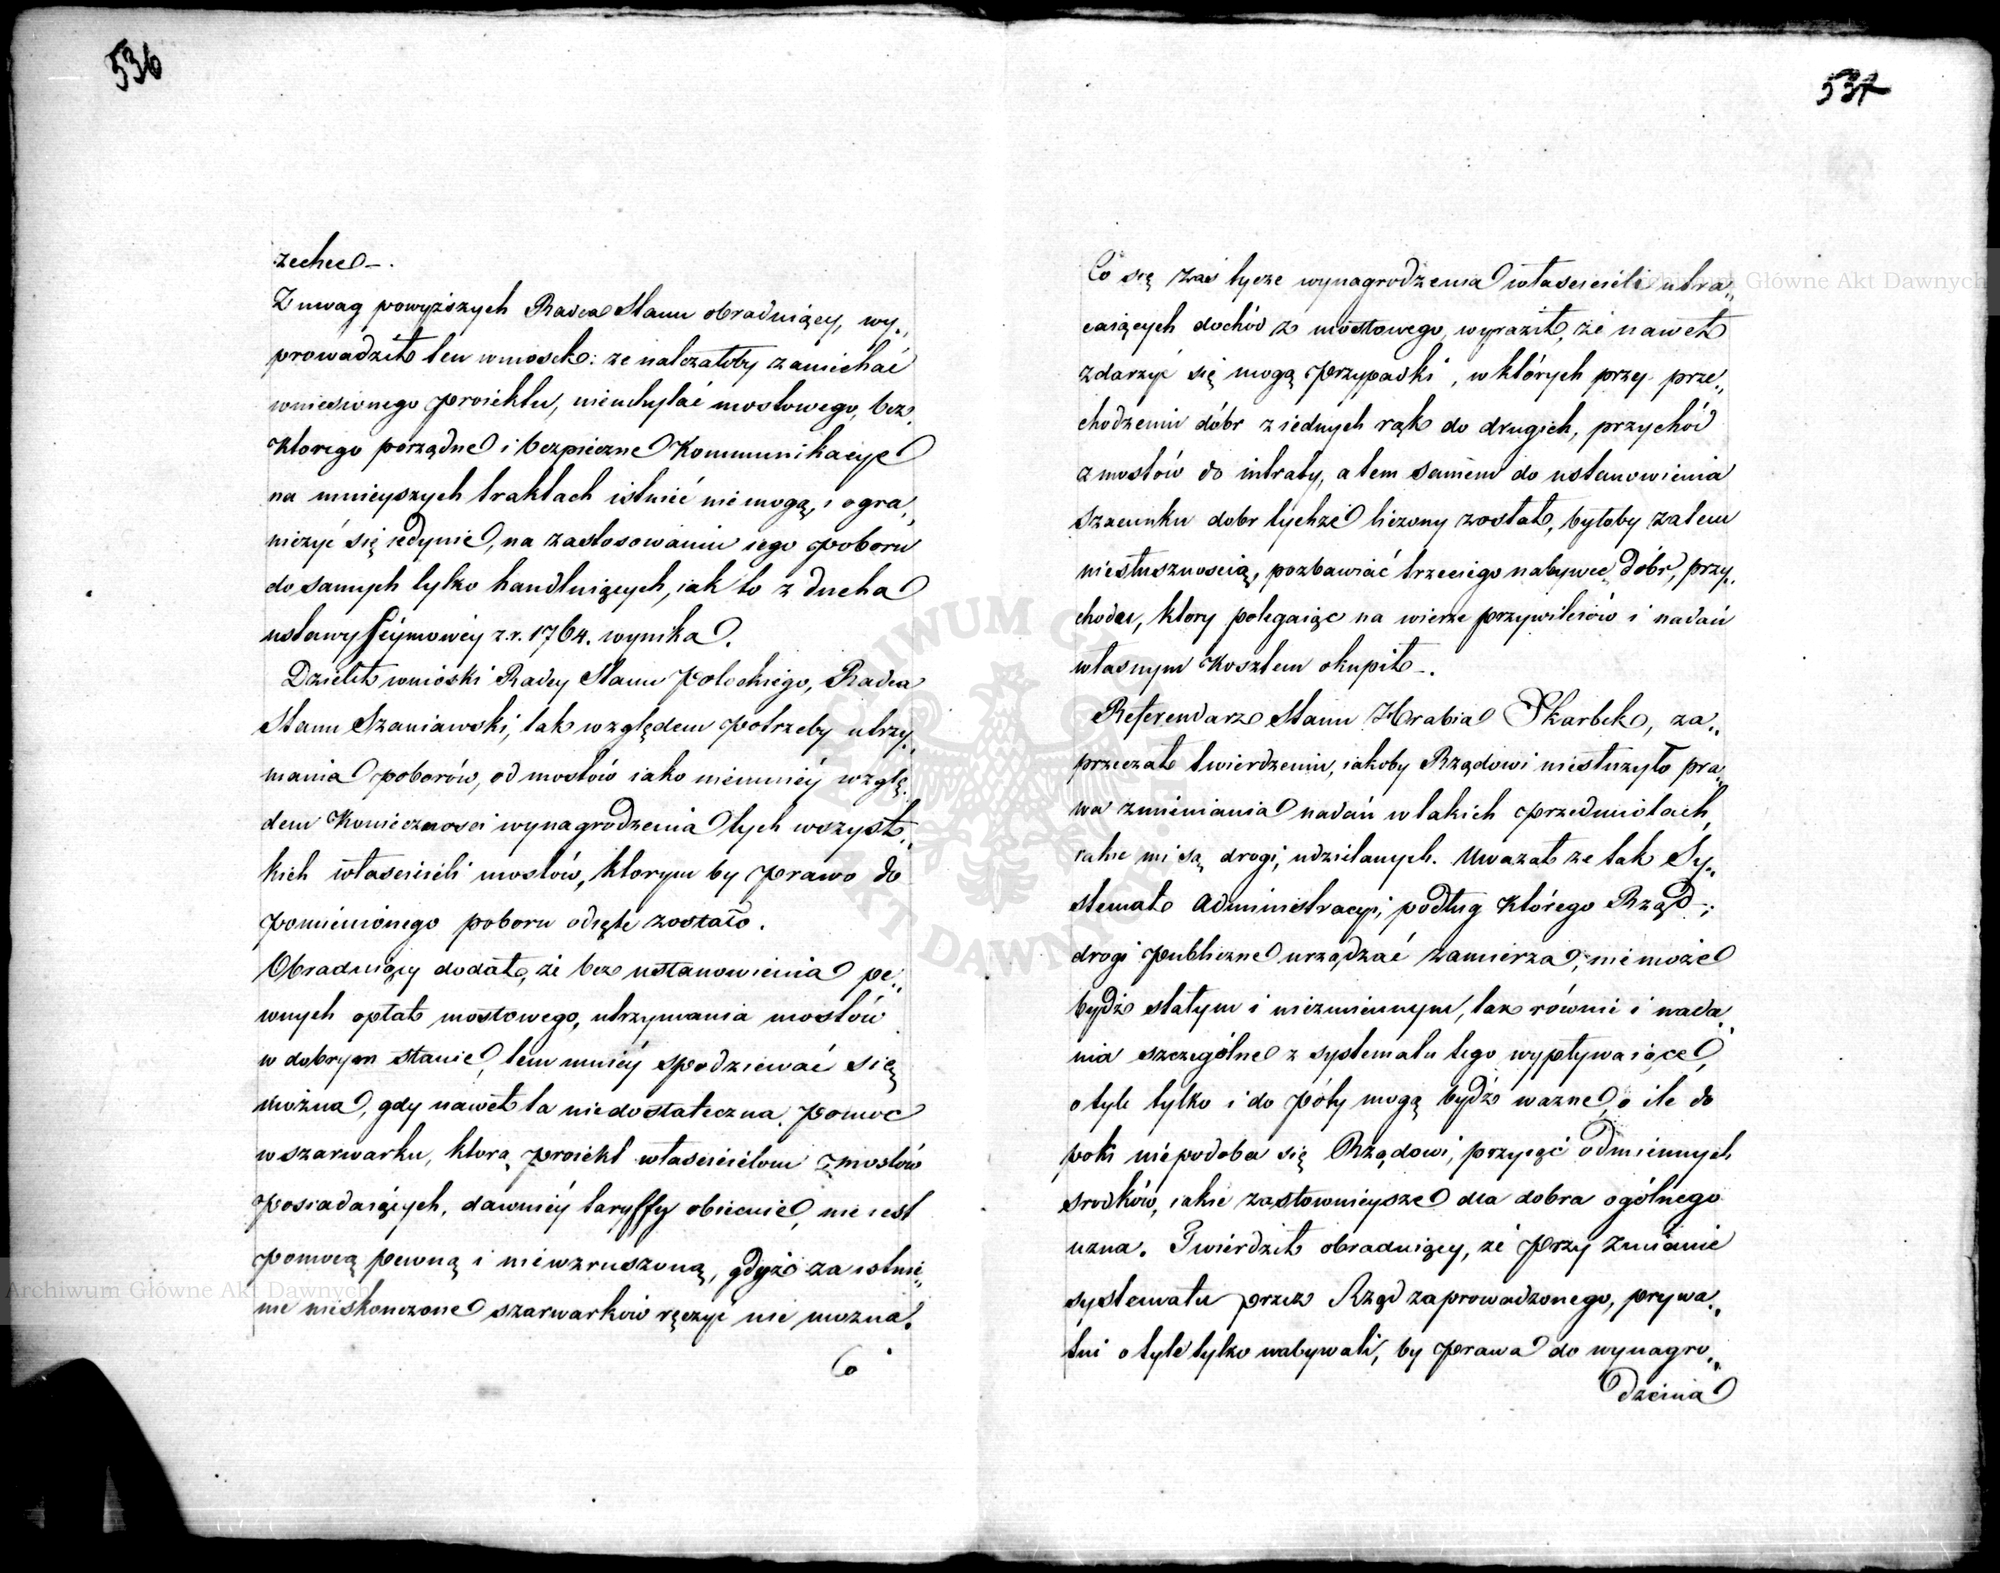 536
zechce -.
Z uwag powyższych Radca Stanu obraduiący, wy„
prowadził ten wniosek: że należałoby zaniechać
wniesionego proiektu, nieuchylać mostowego, bez
ktorego porządne i bezpieczne Kommunikacye
na mnieyszych traktach istnieć niemogą, i ogra„
niczyć się iedynie, na zastosowaniu iego poboru
do samych tylko handluiących, iak to z ducha
ustawy Seymowéy z r. 1764. wynika.
Dzielił wnioski Radcy Stanu Potockiego, Radca
Stanu Szaniawski, tak względem potrzeby utrzy„
mania poborów, od mostów iako niemniéy wzglę„
dem Konieczności wynagrodzenia tych wszyst„
kich właścicieli mostów, ktorym by prawo do
pomienionego poboru odięte zostało.
Obraduiący dodał, że bez ustanowienia pe„
wnych opłat mostowego, utrzymania mostów
w dobrym stanie, tem mniéy spodziewać się
można, gdy nawet ta niedostateczna pomoc
w szarwarku, którą proiekt właścicielom mostów
posiadaiących, dawniéy taryffy obiecuie, nie iest
pomocą pewną i niewzruszoną, gdyż za istnie„
nie nieskonczone szarwarków ręczyć nie można.
Co
537
Co się zaś tycze wynagrodzenia właścicieli utra„
caiących dochód z mostowego, wyraził, że nawet
zdarzyć się mogą przypadki, w których przy prze„
chodzeniu dóbr z iednych rąk do drugich, przychód
z mostów do intraty, a tem samem do ustanowienia
szacunku dobr tychże liczony został, byłoby zatem
niesłusznością, pozbawiać trzeciego nabywcę dóbr, przy„
chodu, ktory polegaiąc na wierze przywileiów i nadań
własnym Kosztem okupił -.
Referendarz Stanu Hrabia Skarbek, za„
przeczał twierdzeniu, iakoby Rządowi niesłużyło pra„
wa zmieniania nadań w takich przedmiotach,
iakie mi są drogi, udzielanych. Uważał że tak Sy„
stemat Administracyi, podług którego Rząd -;
drogi publiczne urządzać zamierza, nie może
bydź stałym i niezmiennym, tak równie i nada„
nia szczególne z systematu tego wypływaiące,
o tyle tylko i do póty mogą bydź ważne, o ile do
póki niepodoba się Rządowi, przyiąć odmiennych
srodków, iakie zastosownieysze dla dobra ogólnego
uzna. Twierdził obraduiący, że przy zmianie
systematu przez Rząd zaprowadzonego, prywa„
tni o tyle tylko nabywali, by prawa do wynagro„
dzenia
ARCHIWUM GŁÓWNE AKT DAWNYCH
Archiwum Główne Akt Dawnych
Archiwum Główne Akt Dawnych